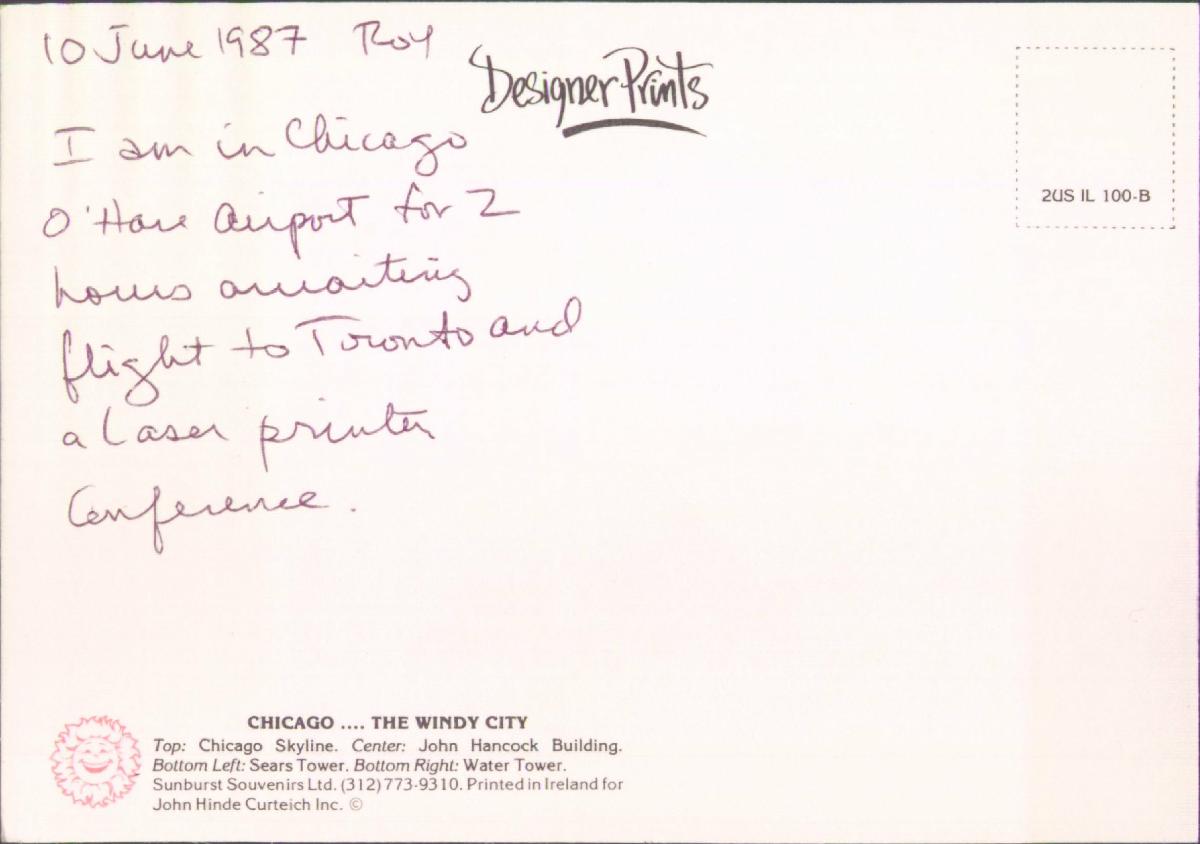 10 June 1987 Roy
Designer Prints
I am in Chicago
O'Hare Airport for 2
hours awaiting
flight to Toronto and
a Laser printer
Conference.
2US IL 100-B
CHICAGO .... THE WINDY CITY
Top: Chicago Skyline. Center: John Hancock Building.
Bottom Left: Sears Tower. Bottom Right: Water Tower.
Sunburst Souvenirs Ltd. (312) 773-9310. Printed in Ireland for
John Hinde Curteich Inc. ©